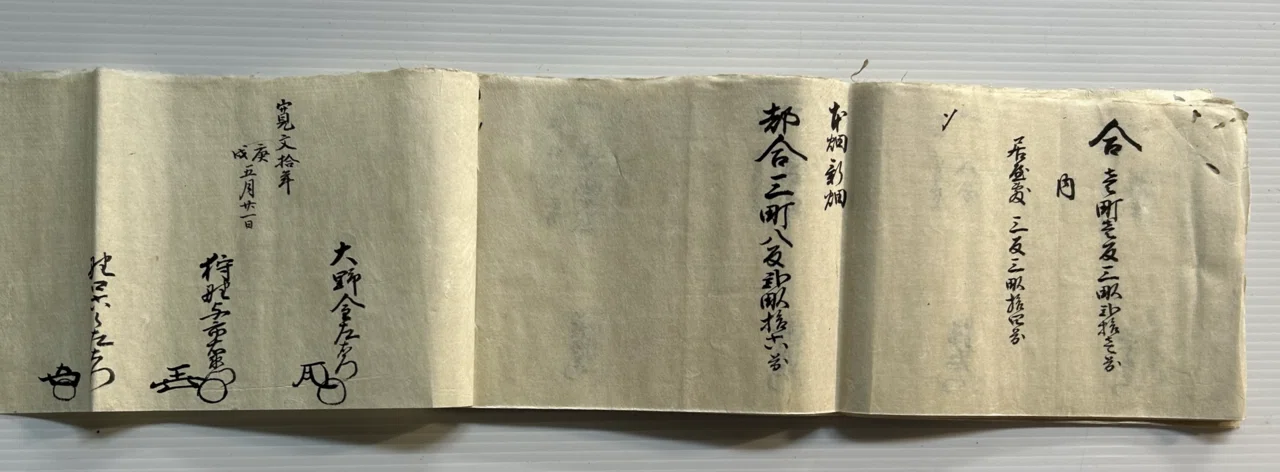 合壱町壱反三畝弐拾壱歩
内
居屋敷 三反三畝拾四歩
本畑新畑
都合三町八反弐畝拾六歩
寛文拾年
庚戌五月廿一日
大野金左衛門
狩野与市右衛門
左衛門